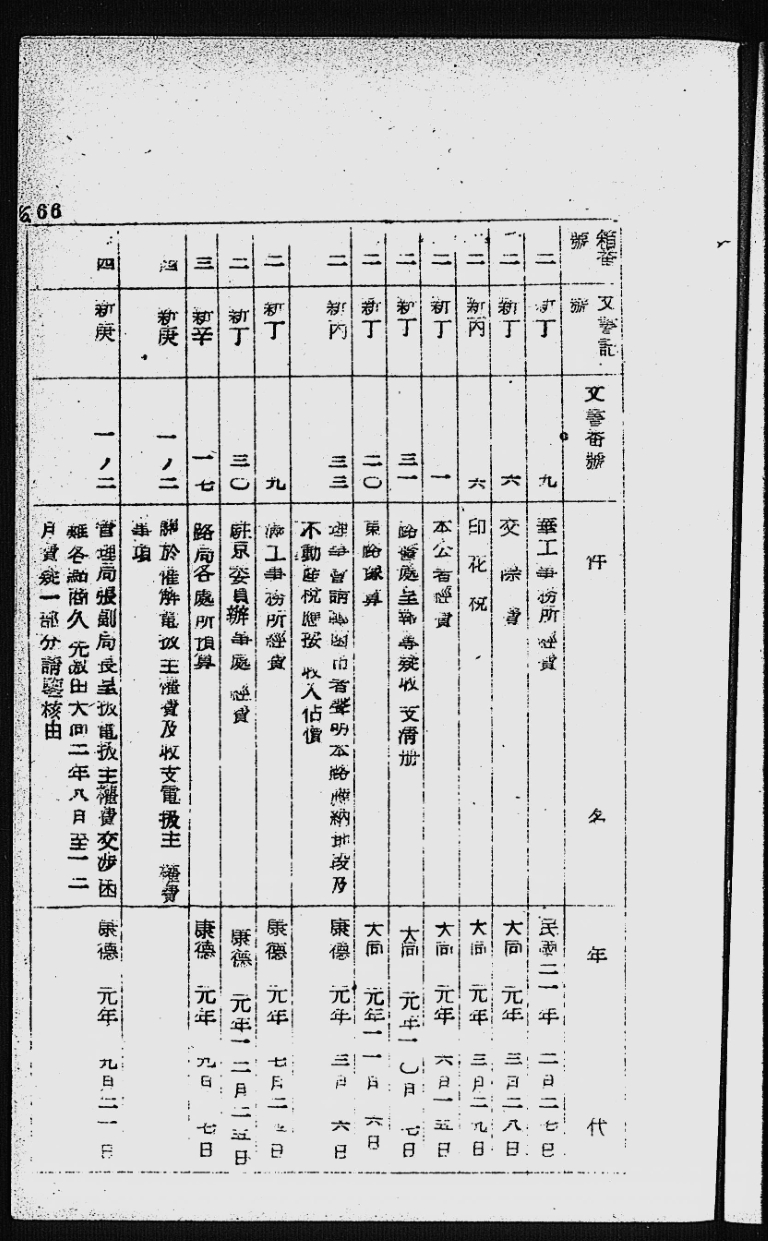 66
箱番號
文書記號
文書番號
件 名
年 代
二 新丁 九 華工事務所經費 民國二一年 二月二七日
二 新丁 六 交際費 大同元年 三月二八日
二 新丙 六 印花稅 大同元年 三月二九日
二 新丁 一 本公署經費 大同元年 六月一五日
二 新丁 三一 路警處呈報專款收支清册 大同元年一〇月 七日
二 新丁 二〇 東路預算 大同元年一一月 六日
二 新丙 三三 理事會請轉函市署聲明本路應納地段及
不動產稅應按收入估價 康德元年 三月 六日
二 新丁 九 工事務所經費 康德元年 七月二日
二 新丁 三〇 駐京委員辦事處經費 康德元年一二月二五日
三 新辛 一七 路局各處所預算 康德元年 九月 七日
四 新庚 一ノ二 關於催解電報主權費及收支電报主權費
事項
四 新庚 一ノ二 管理局張副局長呈報電报主權費交涉困
難各點商久元激由大同二年八月至一二
月費款一部分請鑒核由 康德元年 九月二一日